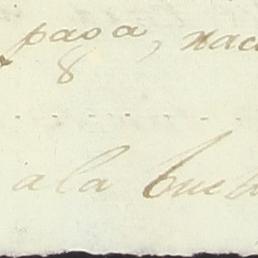 pasa, nac
8
a la bue